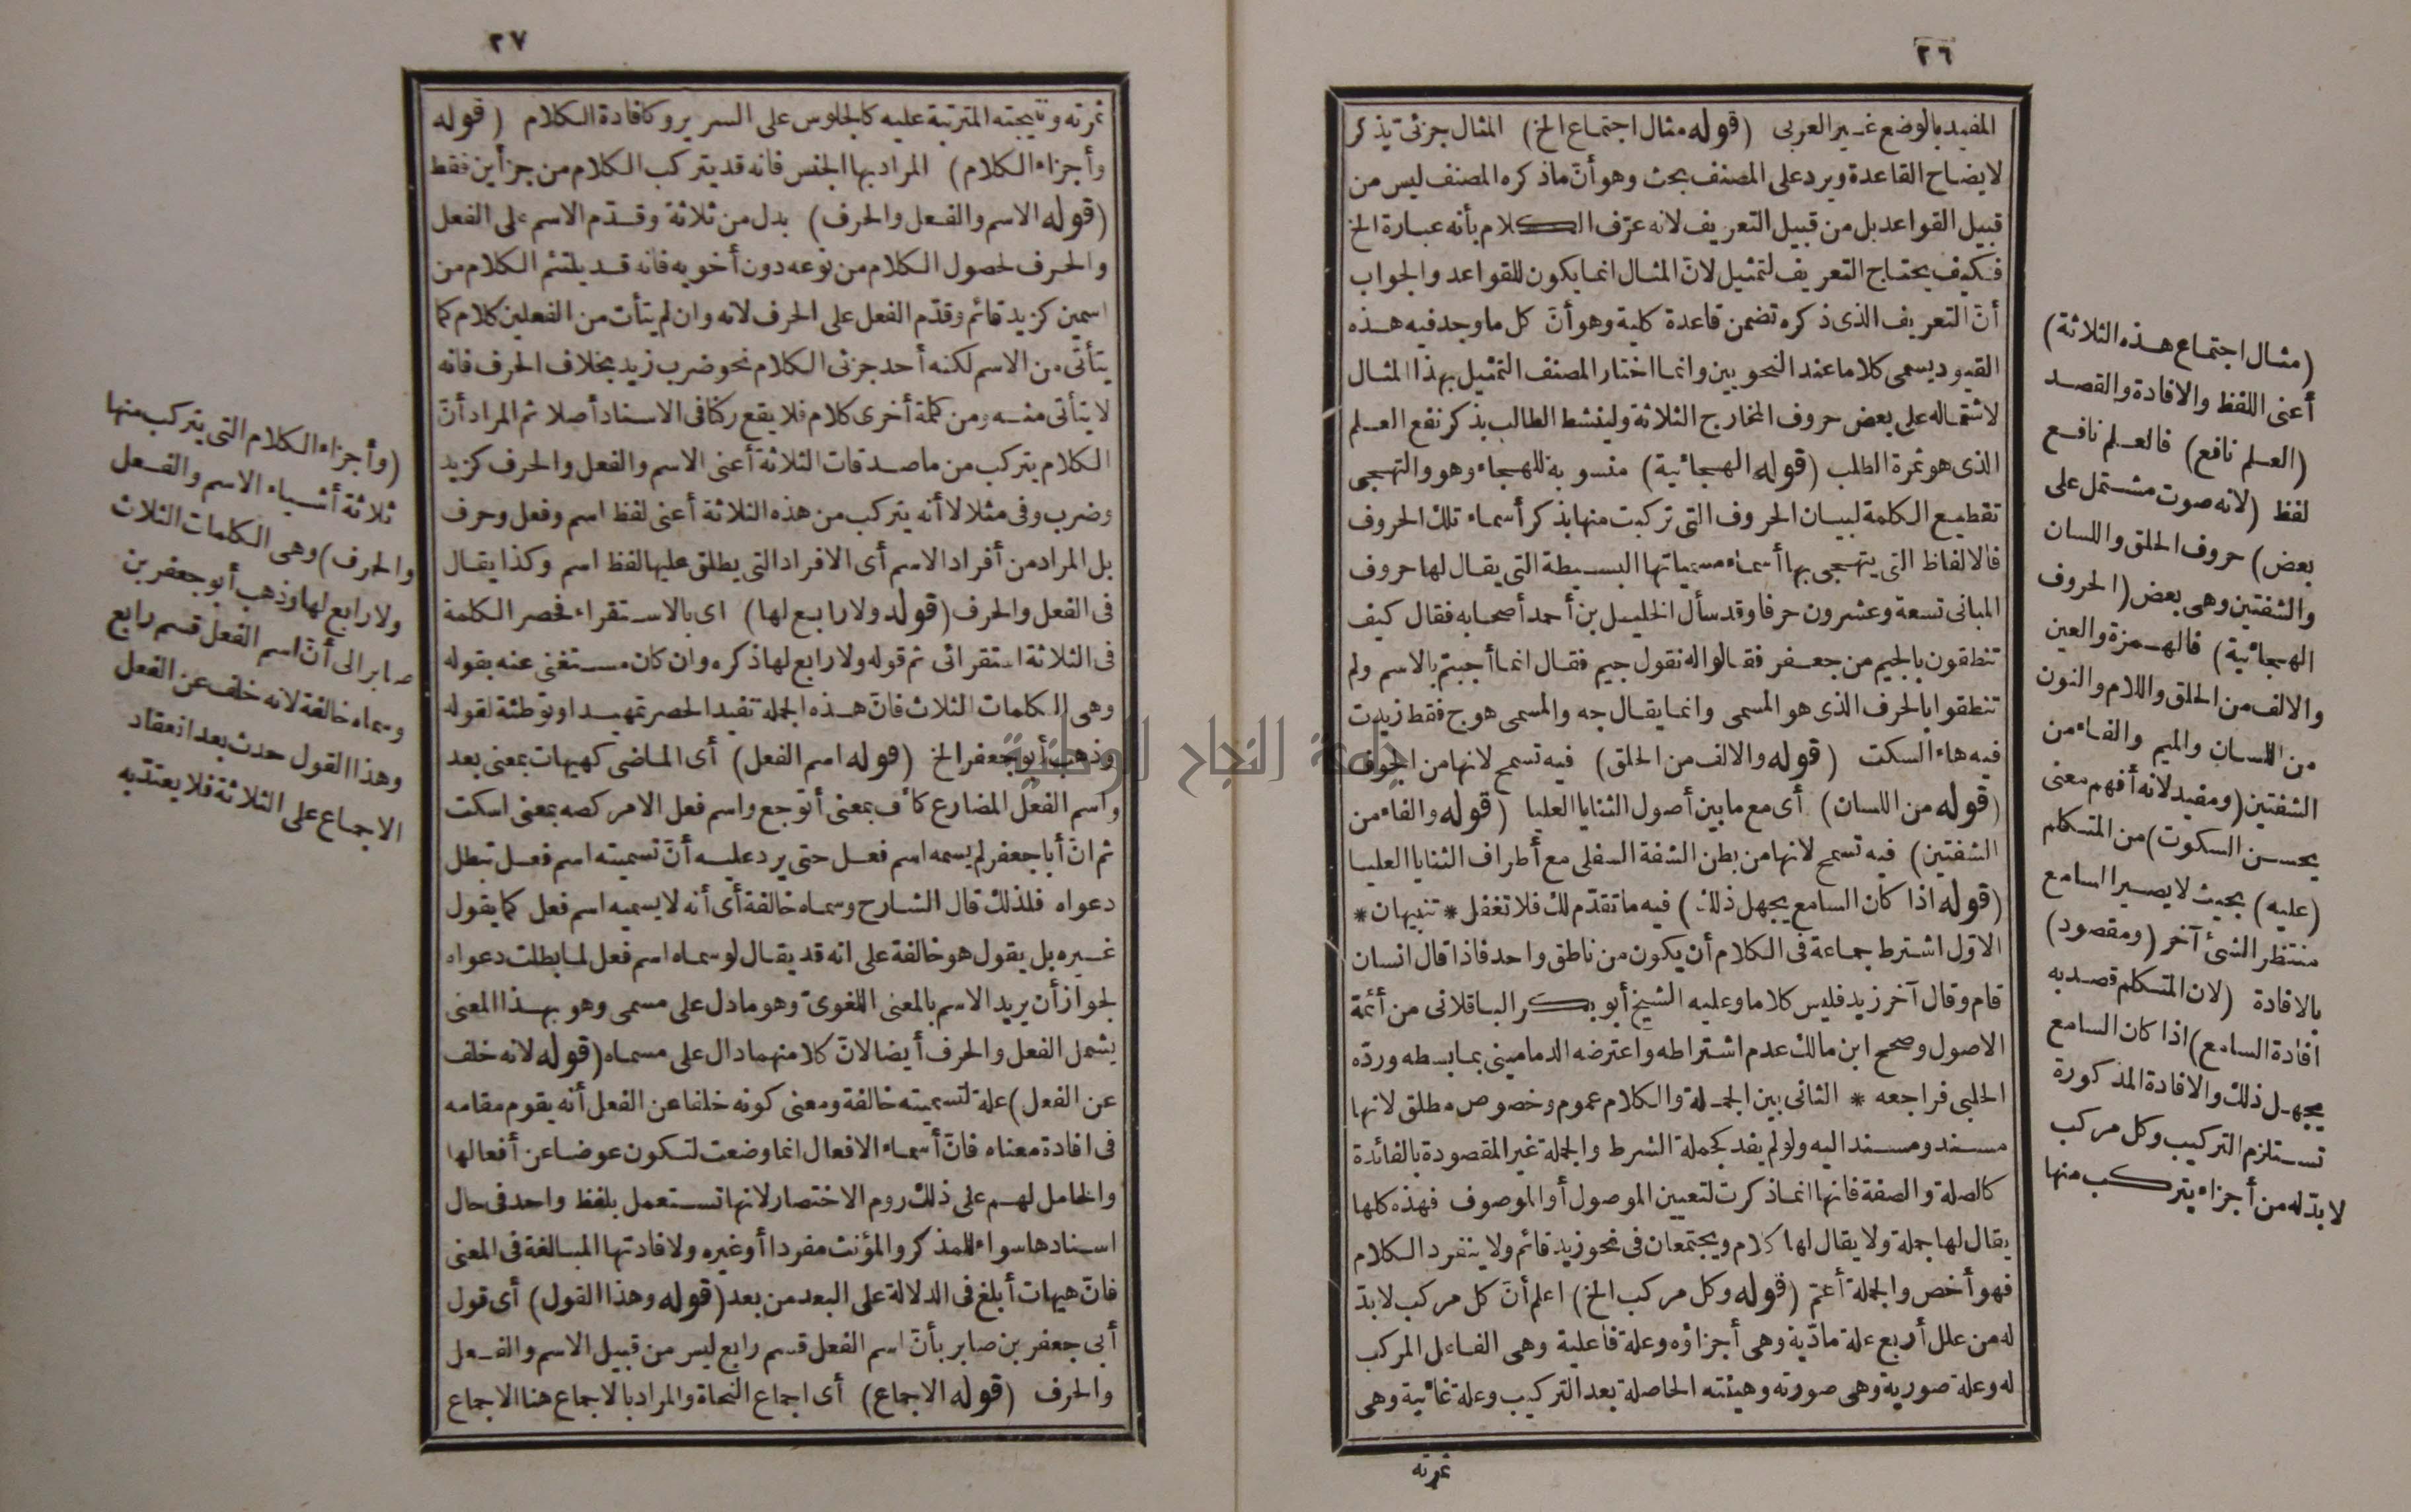 ٢٦
المفيد بالوضع غير العربى (قوله مثال اجتماع الخ) المثال جزئىّ يذكر
لايضاح القاعدة ويرد على المصنف بحث وهو أنّ ماذكره المصنف ليس من
قبيل القواعد بل من قبيل التعريف لانه عرّف الكلام بأنه عبارة الخ
فكيف يحتاج التعريف لتمثيل لانّ المثال انما يكون للقواعد والجواب
أنّ التعريف الذى ذكره تضمن قاعدة كلية وهو أنّ كل ما وجد فيه هذه
القيود يسمى كلاما عند النحويين وانما اختار المصنف التمثيل بهذا المثال
لاشتماله على بعض حروف المخارج الثلاثة ولينشط الطالب بذكر نفع العلم
الذى هو ثمرة الطلب (قوله الهجائية) منسوبة للهجاء وهو والتهجى
تقطيع الكلمة لبيان الحروف التى تركبت منها بذكر أسماء تلك الحروف
فالالفاظ التى يتهجى بها أسماء مسمياتها البسيطة التى يقال لها حروف
المبانى تسعة وعشرون حرفا وقد سأل الخليل بن أحمد أصحابه فقال كيف
تنطقون بالجيم من جعفر فقالوا له نقول جيم فقال انما أجبتم بالاسم ولم
تنطقوا بالحرف الذى هو المسمى وانما يقال جه والمسمى هو ج فقط زيدت
فيه هاء السكت (قوله والالف من الحلق) فيه تسمح لانها من الجوف
(قوله من اللسان) أى مع ما بين أصول الثنايا العليا (قوله والفاء من
الشفتين) فيه تسمح لانها من بطن الشفة السفلى مع أطراف الثنايا العليا
(قوله اذا كان السامع يجهل ذلك) فيه ما تقدّم لك فلا تغفل * تنبيهان *
الاوّل اشترط جماعة فى الكلام أن يكون من ناطق واحد فاذا قال انسان
قام وقال آخر زيد فليس كلاما وعليه الشيخ أبو بكر الباقلانى من أئمة
الاصول وصحح ابن مالك عدم اشتراطه واعترضه الدمامينى بما بسطه وردّه
الحلبى فراجعه * الثانى بين الجملة والكلام عموم وخصوص مطلق لانها
مسند ومسند اليه ولو لم يفد كجملة الشرط والجملة غير المقصودة بالفائدة
كالصلة والصفة فانها انما ذكرت لتعيين الموصول أو الموصوف فهذه كلها
يقال لها جملة ولا يقال لها كلام ويجتمعان فى نحو زيد قائم ولا ينفرد الكلام
فهو أخص والجملة أعمّ (قوله وكل مركب الخ) اعلم أنّ كل مركب لا بدّ
له من علل أربع علة مادّية وهى أجزاؤه وعلة فاعلية وهى الفاعل المركب
له وعلة صورية وهى صورته وهيئته الحاصلة بعد التركيب وعلة غائية وهى
ثمرته
(مثال اجتماع هذه الثلاثة)
أعنى اللفظ والافادة والقصد
(العلم نافع) فالعلم نافع
لفظ (لانه صوت مشتمل على
بعض) حروف الحلق واللسان
والشفتين وهى بعض (الحروف
الهجائية) فالهمزة والعين
والالف من الحلق واللام والنون
من اللسان والميم والفاء من
الشفتين (ومفيد لانه أفهم معنى
يحسن السكوت) من المتكلم
(عليه) بحيث لا يصير السامع
منتظر الشئ آخر (ومقصود)
بالافادة (لان المتكلم قصد به
افادة السامع) اذا كان السامع
يجهل ذلك والافادة المذكورة
تستلزم التركيب وكل مركب
لا بدّ له من أجزاء يتركب منها
٢٧
ثمرته ونتيجته المترتبة عليه كالجلوس على السرير وكافادة الكلام (قوله
وأجزاء الكلام) المراد بها الجنس فانه قد يتركب الكلام من جزأين فقط
(قوله الاسم والفعل والحرف) بدل من ثلاثة وقدّم الاسم على الفعل
والحرف لحصول الكلام من نوعه دون أخويه فانه قد يلتئم الكلام من
اسمين كزيد قائم وقدّم الفعل على الحرف لانه وان لم يتأت من الفعلين كلام كما
يتأتى من الاسم لكنه أحد جزئى الكلام نحو ضرب زيد بخلاف الحرف فانه
لا يتأتى منه ومن كلمة أخرى كلام فلا يقع ركنا فى الاسناد أصلا ثم المراد أنّ
الكلام يتركب من ماصدقات الثلاثة أعنى الاسم والفعل والحرف كزيد
وضرب وفى مثلا لا أنه يتركب من هذه الثلاثة أعنى لفظ اسم وفعل وحرف
بل المراد من أفراد الاسم أى الافراد التى يطلق عليها لفظ اسم وكذا يقال
فى الفعل والحرف (قوله ولا رابع لها) اى بالاستقراء فحصر الكلمة
فى الثلاثة استقرائى ثم قوله ولا رابع لها ذكره وان كان مستغنى عنه بقوله
وهى الكلمات الثلاث فانّ هذه الجملة تفيد الحصر تمهيدا وتوطئة لقوله
وذهب أبو جعفر الخ (قوله اسم الفعل) أى الماضى كهيهات بمعنى بعد
واسم الفعل المضارع كأف بمعنى أتوجع واسم فعل الامر كصه بمعنى اسكت
ثم انّ أبا جعفر لم يسمه اسم فعل حتى يرد عليه أنّ تسميته اسم فعل تبطل
دعواه فلذلك قال الشارح وسماه خالفة أى أنه لا يسميه اسم فعل كما يقول
غيره بل يقول هو خالفة على انه قد يقال لو سماه اسم فعل لما بطلت دعواه
لجواز أن يريد الاسم بالمعنى اللغوىّ وهو ما دل على مسمى وهو بهذا المعنى
يشمل الفعل والحرف أيضا لانّ كلا منهما دال على مسماه (قوله لانه خلف
عن الفعل) علة لتسميته خالفة ومعنى كونه خلفا عن الفعل أنه يقوم مقامه
فى افادة معناه فانّ أسماء الافعال انما وضعت لتكون عوضا عن أفعالها
والحامل لهم على ذلك روم الاختصار لانها تستعمل بلفظ واحد فى حال
اسنادها سواء للمذكر والمؤنث مفردا أو غيره ولافادتها المبالغة فى المعنى
فانّ هيهات أبلغ فى الدلالة على البعد من بعد (قوله وهذا القول) أى قول
أبى جعفر بن صابر بأنّ اسم الفعل قسم رابع ليس من قبيل الاسم والفعل
والحرف (قوله الاجماع) أى اجماع النحاة والمراد بالاجماع هنا الاجماع
(وأجزاء الكلام التى يتركب منها
ثلاثة أشياء الاسم والفعل
والحرف) وهى الكلمات الثلاث
ولا رابع لها وذهب أبو جعفر بن
صابر الى أنّ اسم الفعل قسم رابع
وسماه خالفة لانه خلف عن الفعل
وهذا القول حدث بعد انعقاد
الاجماع على الثلاثة فلا يعتدّ به
جامعة النجاح الوطنية